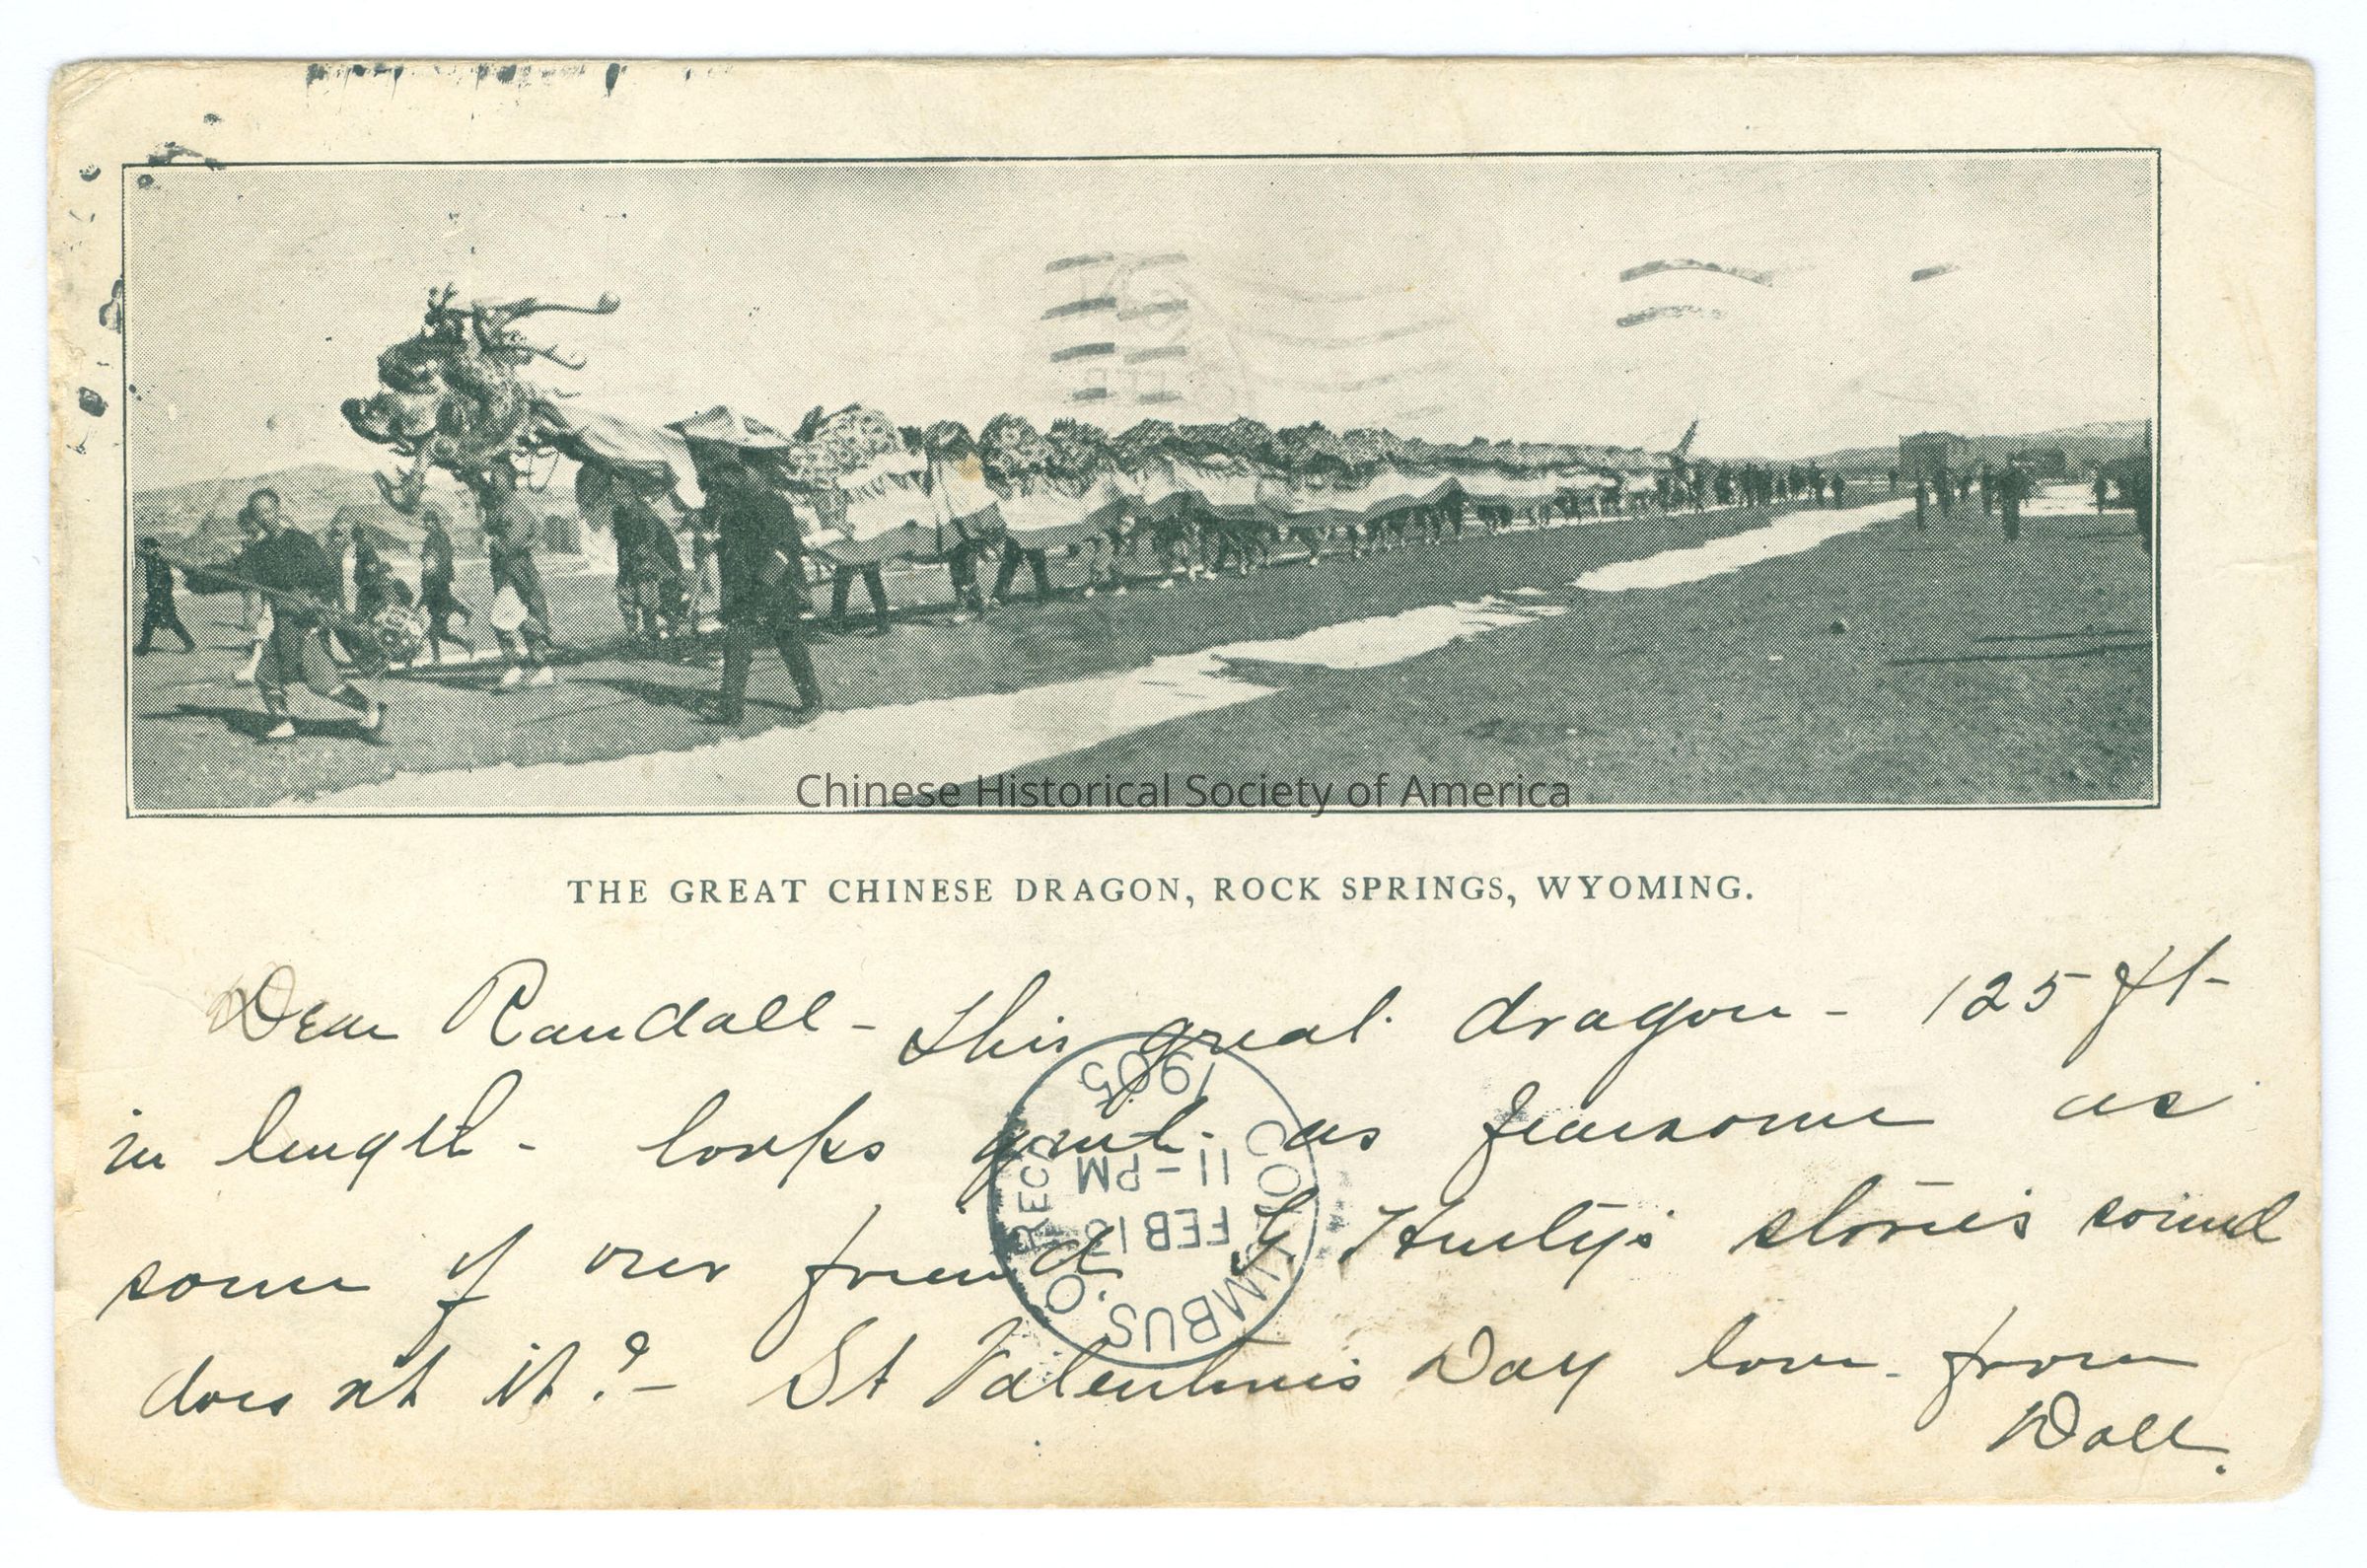 Chinese Historical Society of America
THE GREAT CHINESE DRAGON, ROCK SPRINGS, WYOMING.
Dear Randall - This great dragon - 125 ft -
in length - looks as fearsome as
some of our friend stories sound
does nt it? - St Valentines Day love from
COLUMBUS, O. REC'D
1905
11-PM
FEB 13